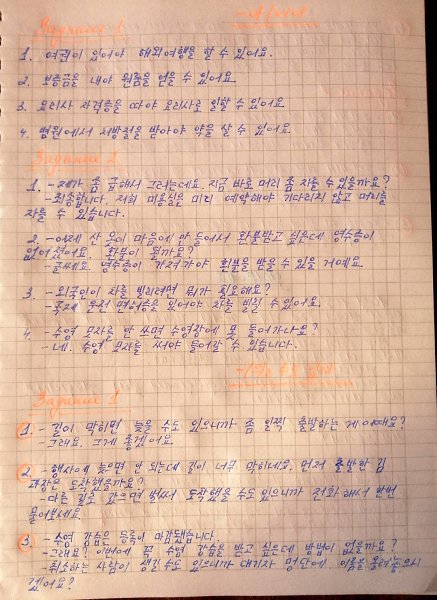 Задание 1
1. 여권이 있어야 해외여행을 할 수 있어요.
2. 보증금을 내야 원룸을 얻을 수 있어요.
3. 요리사 자격증을 따야 요리사로 일할 수 있어요.
4. 병원에서 처방전을 받아야 약을 살 수 있어요.
Задание 2
1. - 제가 좀 급해서 그러는데요. 지금 바로 머리 좀 자를 수 있을까요?
- 죄송합니다. 저희 미용실은 미리 예약해야 기다리지 않고 머리를
자를 수 있습니다.
2. - 어제 산 옷이 마음에 안 들어서 환불받고 싶은데 영수증이
없어요. 환불이 될까요?
- 글쎄요. 영수증이 가져가야 환불을 받을 수 있을 거예요.
3. - 외국인이 차를 빌리려면 뭐가 필요해요?
- 국제 운전 면허증을 있어야 차를 빌릴 수 있어요.
4. - 수영 모자를 안 쓰면 수영장에 못 들어가나요?
- 네. 수영 모자를 써야 들어갈 수 있습니다.
Задание 1
1. - 길이 막히면 늦을 수도 있으니까 좀 일찍 출발하는 게 어때요?
- 그래요. 그게 좋겠어요.
2. - 행사에 늦으면 안 되는데 길이 너무 막히네요. 먼저 출발한 김
과장은 도착했을까요?
- 다른 길로 갔으면 벌써 도착했을 수도 있으니까 전화해서 한번
물어보세요.
3. - 수영 강습은 등록이 마감됐습니다.
- 그래요? 이번에 꼭 수영 강습을 받고 싶은데 방법이 없을까요?
- 취소하는 사람이 생길 수도 있으니까 대기자 명단에 이름을 올려놓으시
겠어요?